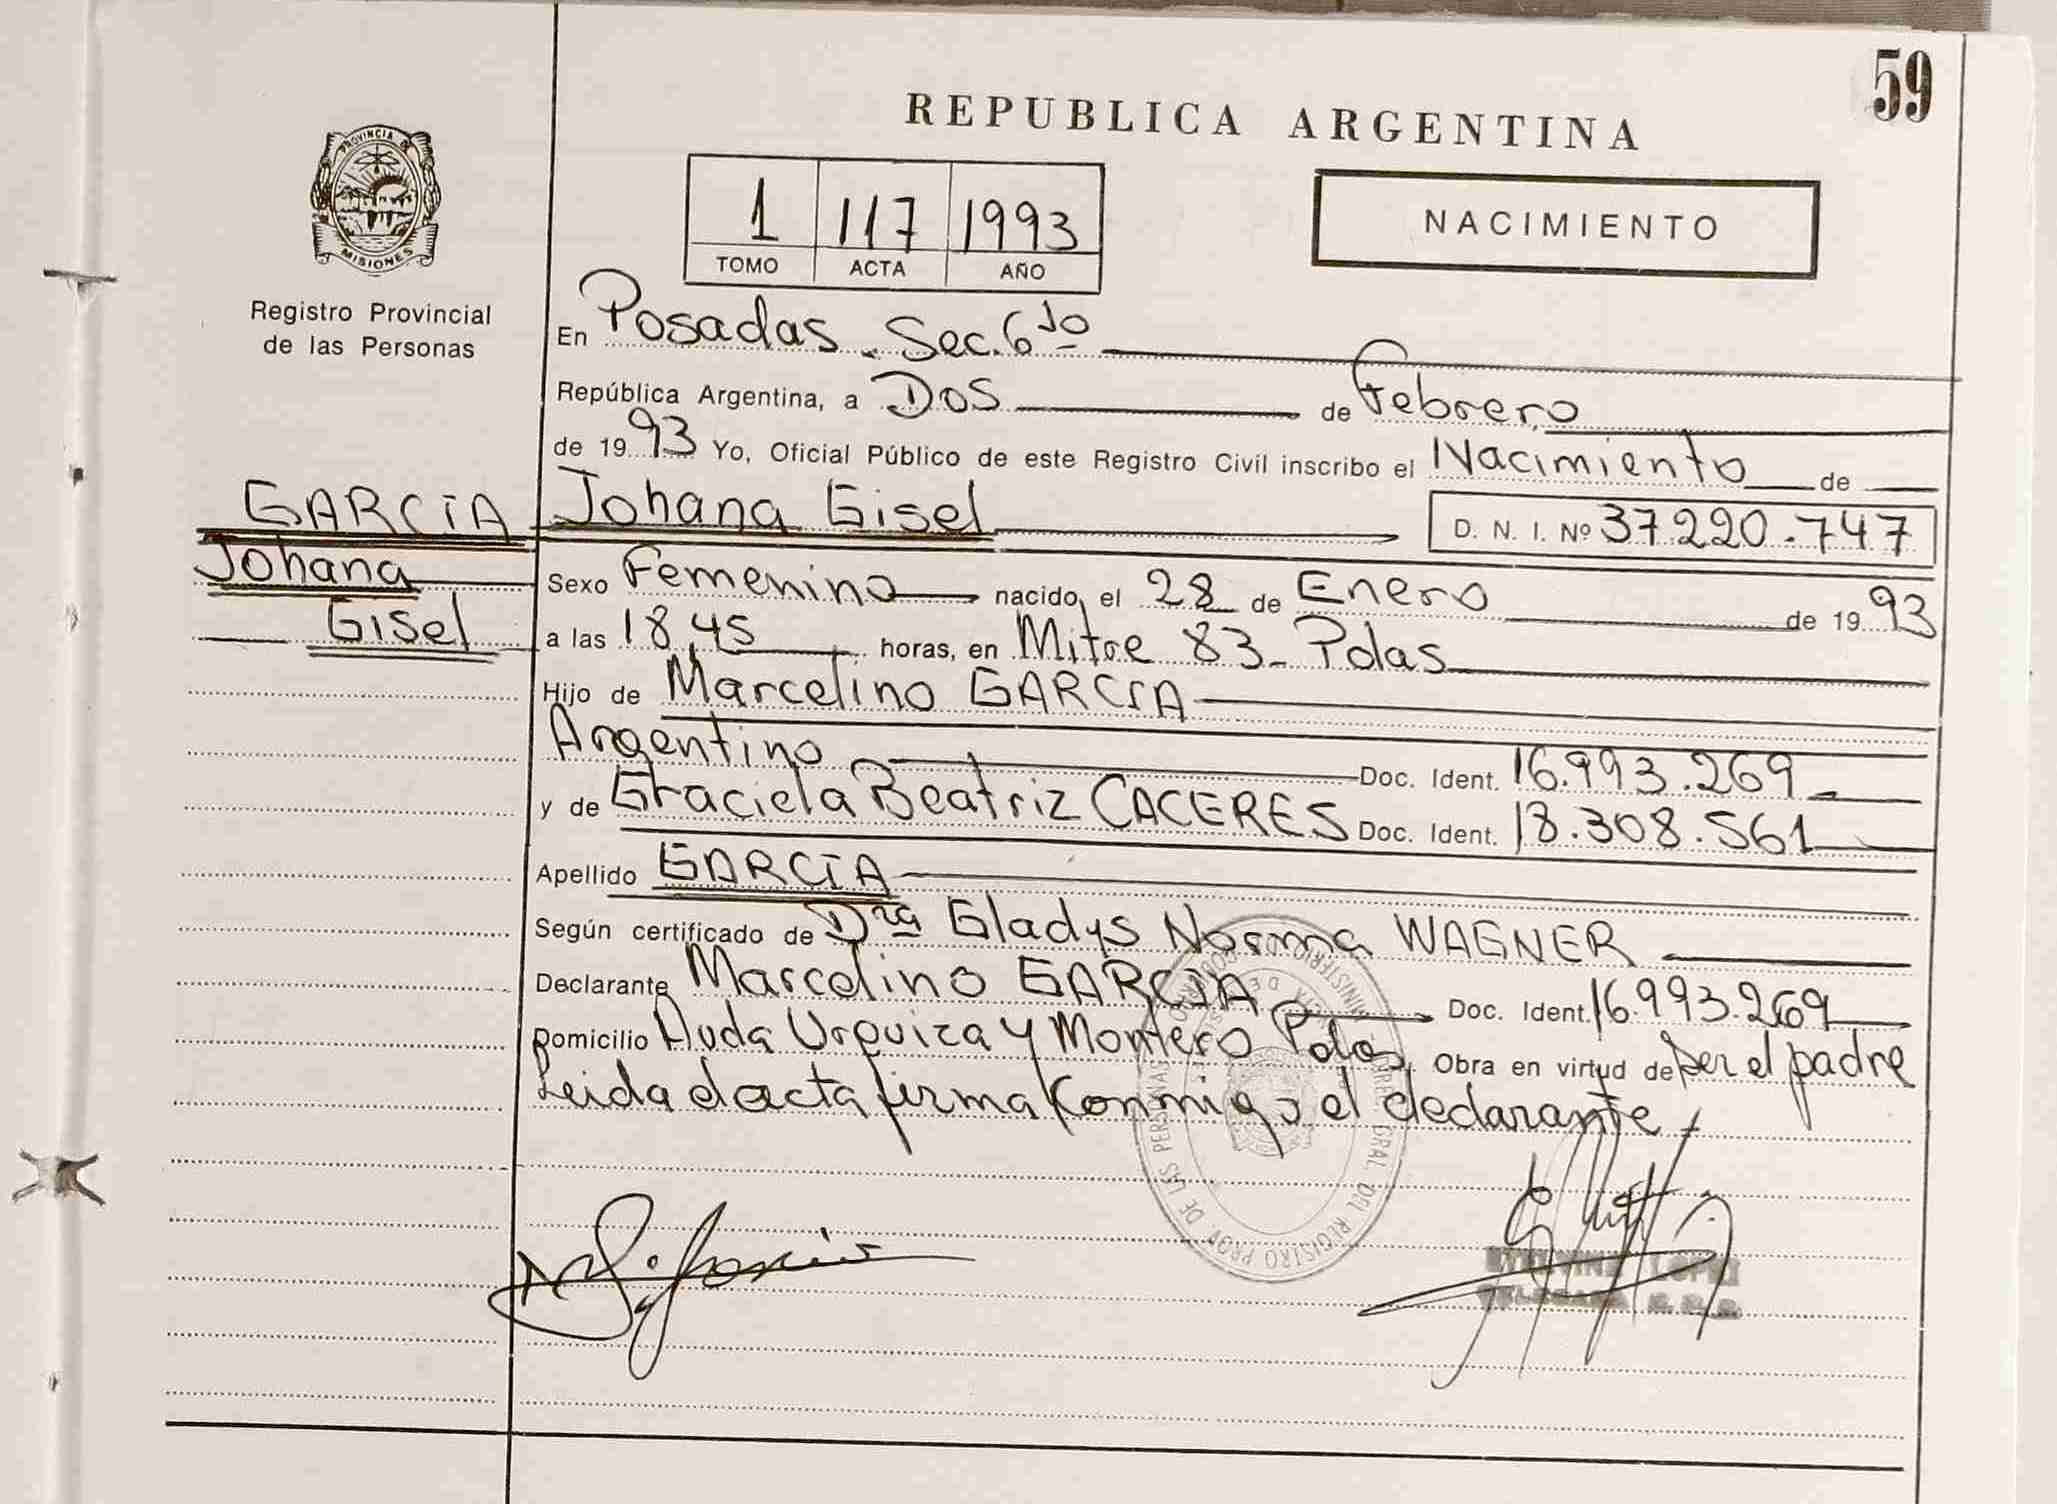 59
REPUBLICA ARGENTINA
PROVINCIA DE
MISIONES
Registro Provincial
de las Personas
1 117 1993
TOMO ACTA AÑO
NACIMIENTO
En Posadas. Sec. 6
República Argentina, a Dos de Febrero
de 1993 Yo, Oficial Público de este Registro Civil inscribo el Nacimiento de
GARCIA
Johana
Gisel
Johana Gisel D. N. I. Nº 37220.747
Sexo Femenino nacido, el 28 de Enero de 1993
a las 18,45 horas, en Mitre 83 - Pdas
Hijo de Marcelino GARCIA
Argentino Doc. Ident. 16.993.269
y de Graciela Beatriz CACERES Doc. Ident. 18.308.561
Apellido GARCIA
Según certificado de Dra Gladys Norma WAGNER
Declarante Marcelino GARCIA Doc. Ident. 16.993.269
Domicilio Avda Urquiza y Montero Pdas, Obra en virtud de ser el padre
Leida el acta firma conmigo el declarante